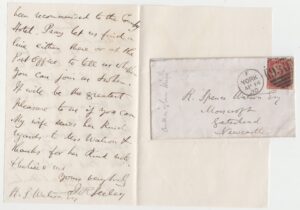 been recommended to the County
Hotel. Pray let us find a
line either there or at the
Post Office, to tell us where
you can join us further.
It will be the greatest
pleasure to us if you can.
My wife sends her kind
regards to Mrs Watson &
thanks for her kind
& believe me
Yours very truly
R. S. Watson Esq
YORK
R. Spence Watson Esq
Gateshead
Newcastle